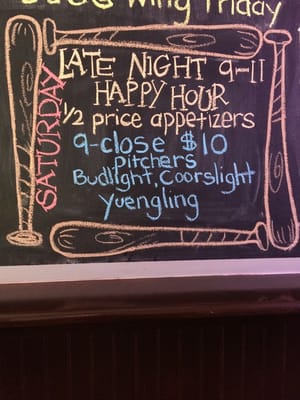 Wing Friday
SATURDAY
LATE NIGHT 9-11
HAPPY HOUR
1/2 price appetizers
9-close $10
pitchers
Budlight, Coorslight
Yuengling